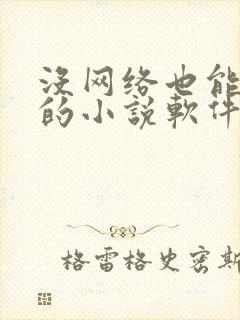 没网络也能
的小說軟件
格雷格史密斯